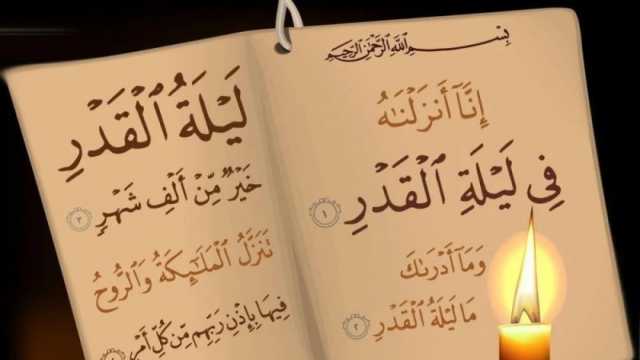 بِسْمِ اللَّهِ الرَّحْمَنِ الرَّحِيمِ
إِنَّآ أَنزَلْنَٰهُ
فِي لَيْلَةِ ٱلْقَدْرِ ١
وَمَآ أَدْرَىٰكَ
مَا لَيْلَةُ ٱلْقَدْرِ ٢
لَيْلَةُ ٱلْقَدْرِ
خَيْرٌ مِّنْ أَلْفِ شَهْرٍ ٣
تَنَزَّلُ ٱلْمَلَٰٓئِكَةُ وَٱلرُّوحُ
فِيهَا بِإِذْنِ رَبِّهِم مِّن كُلِّ أَمْرٍ